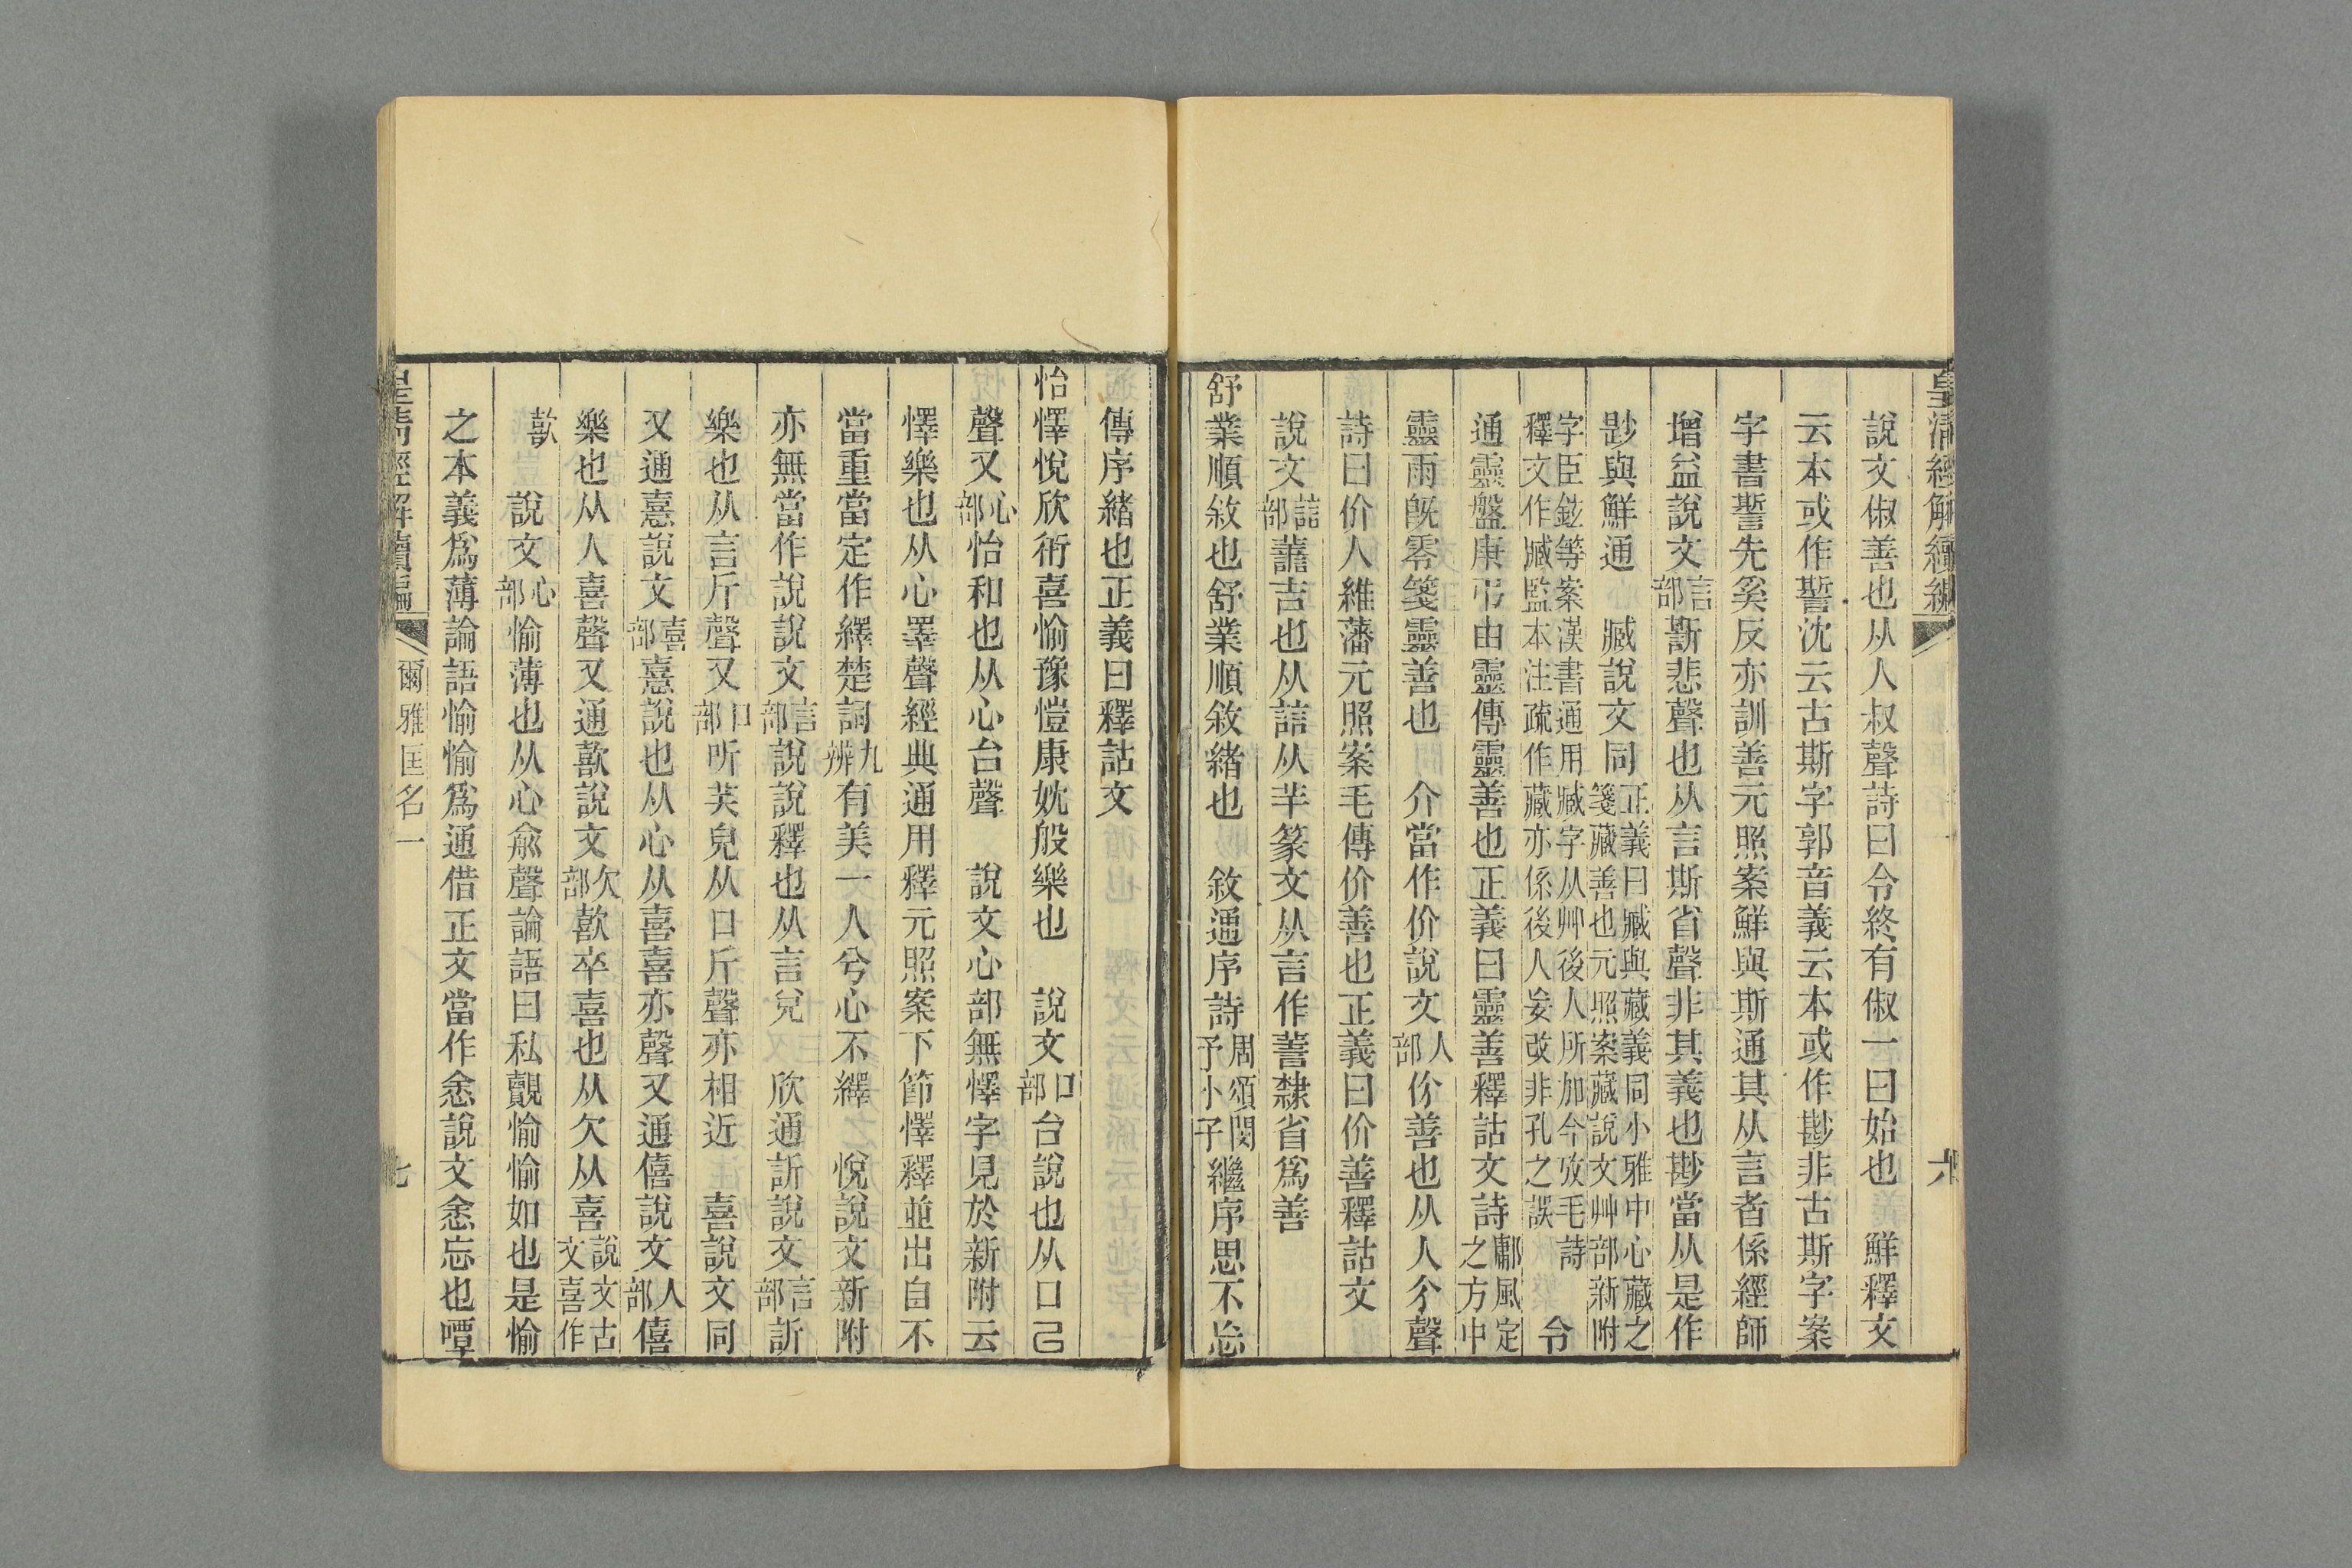 皇清經解續編 六
說文俶善也从人叔聲詩曰令終有俶一曰始也　鮮釋文
云本或作誓沈云古斯字郭音義云本或作尠非古斯字案
字書誓先奚反亦訓善元照案鮮與斯通其从言者係經師
增益說文言部譭悲聲也从言斯省聲非其義也尠當从是作
尟與鮮通　臧說文同正義曰臧與藏義同小雅中心藏之箋藏善也元照案藏說文艸部新附
字臣鉉等案漢書通用臧字从艸後人所加今攷毛詩釋文作臧監本注疏作藏亦係後人妄改非孔之誤　令
通靈盤庚弔由靈傳靈善也正義曰靈善釋詁文詩鄘風定之方中
靈雨旣零箋靈善也　介當作价說文人部价善也从人介聲
詩曰价人維藩元照案毛傳价善也正義曰价善釋詁文
說文誩部譱吉也从誩从羊篆文从言作善隸省爲善
舒業順敘也舒業順敘緒也　敘通序詩周頌閔予小子繼序思不忘
傳序緖也正義曰釋詁文
怡懌悅欣衎喜愉豫愷康妉般樂也　說文口部台說也从口㠯
聲又心部怡和也从心台聲　說文心部無懌字見於新附云
懌樂也从心睪聲經典通用釋元照案下節懌釋並出自不
當重當定作繹楚詞九辨有美一人兮心不繹　悅說文新附
亦無當作說說文言部說說釋也从言兌　欣通訢說文言部訢
樂也从言斤聲又口部听笑皃从口斤聲亦相近　喜說文同
又通憙說文喜部憙說也从心从喜喜亦聲又通僖說文人部僖
樂也从人喜聲又通歖說文欠部歖卒喜也从欠从喜說文古文喜作
歖　說文心部愉薄也从心兪聲論語曰私覿愉愉如也是愉
之本義爲薄論語愉愉爲通借正文當作悆說文悆忘也嘾
皇清經解續編　爾雅匡名一　七